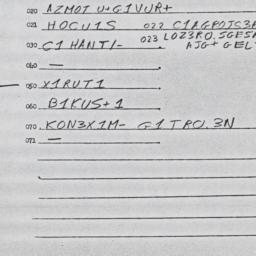 020 AZMOT U+G1VUR+
021 HOCU1S 022 C1AGPOTC3P
023 LOZ3RO.SGESA
030 C1 HANT1- AJG+ GEL
040 —
050 X1RUT1
060 B1KUS+1
070 KON3X1M- G1TRO.3N
071 —